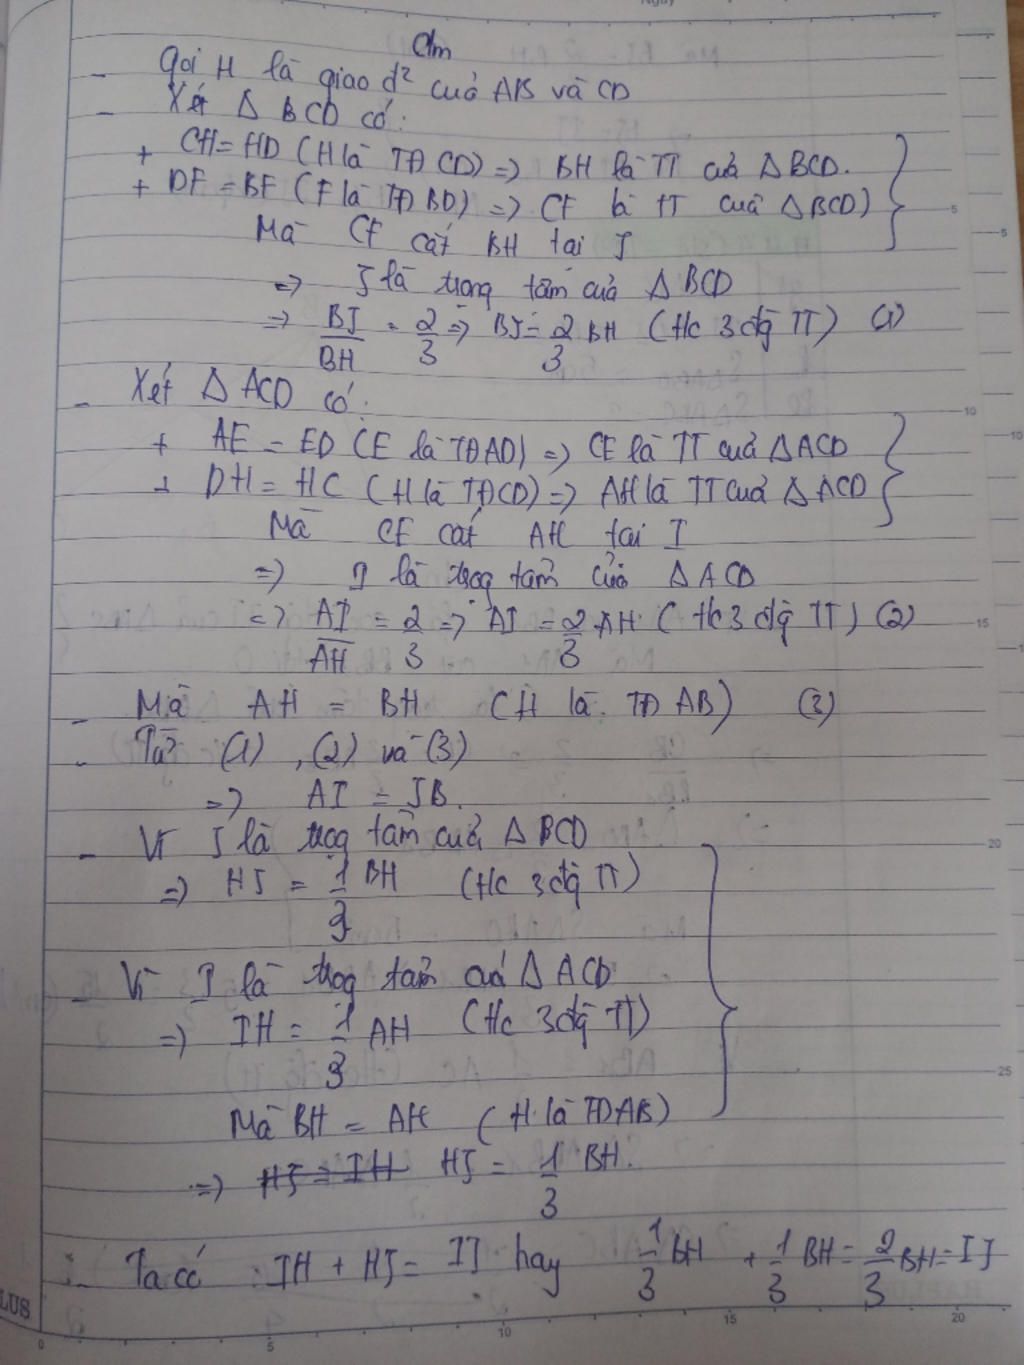 Ngày
Clm
- Gọi H là giao đ² của AB và CD
- Xét Δ BCD có:
+ CH = HD (H là TĐ CD) => BH là TT của Δ BCD.
+ DF = BF (F là TĐ BD) => CF là TT của Δ BCD)
Mà CF cắt BH tại J
=> J là trọng tâm của Δ BCD
=> BJ/BH = 2/3 => BJ = 2/3 BH (t/c 3 đg TT) (1)
- Xét Δ ACD có:
+ AE = ED (E là TĐ AD) => CE là TT của Δ ACD
+ DH = HC (H là TĐ CD) => AH là TT của Δ ACD
Mà CE cắt AH tại I
=> I là trog tâm của Δ ACD
=> AI/AH = 2/3 => AI = 2/3 AH (t/c 3 đg TT) (2)
- Mà AH = BH (H là TĐ AB) (3)
- Từ (1), (2) và (3)
=> AI = JB.
- Vì J là trog tâm của Δ BCD
=> HJ = 1/3 BH (t/c 3 đg TT)
- Vì I là trog tâm của Δ ACD
=> IH = 1/3 AH (t/c 3 đg TT)
Mà BH = AH (H là TĐ AB)
=> HJ = IH HJ = 1/3 BH.
- Ta có : IH + HJ = IJ hay 1/3 BH + 1/3 BH = 2/3 BH = IJ
LUS